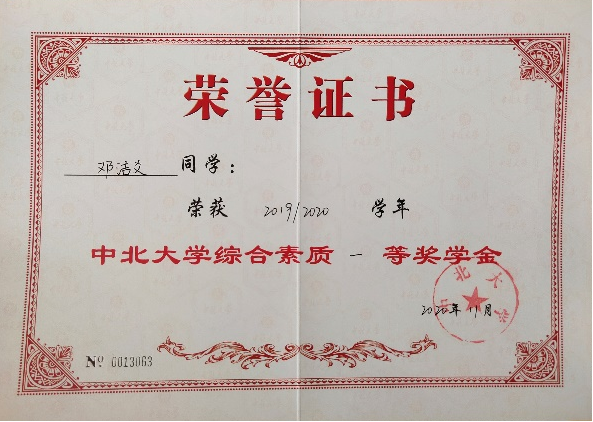 荣誉证书
邓洁文 同学：
荣获 2019/2020 学年
中北大学综合素质 一 等奖学金
中北大学
2020年11月
Nº 0013063